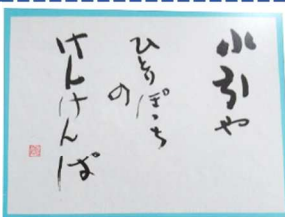 小引や
ひとりぽっち
の
けんけんぱ